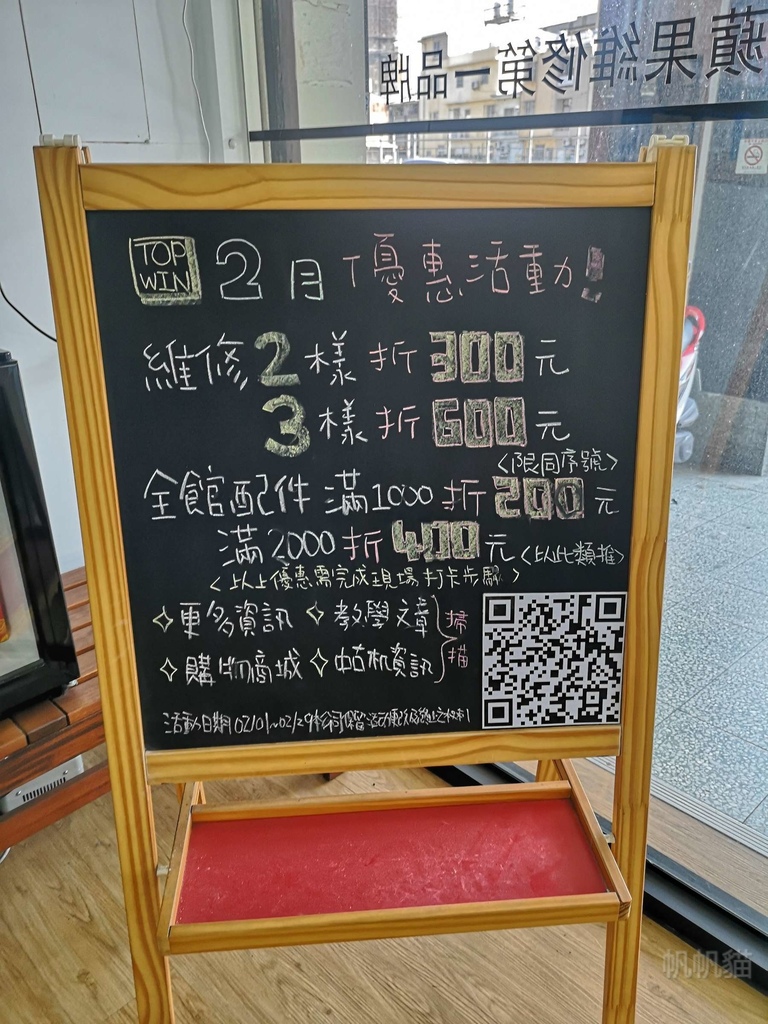 蘋果維修第一品牌
TOP WIN 2月優惠活動!
維修2樣折300元
3樣折600元
<限同序號>
全館配件滿1000折200元
滿2000折400元<以此類推>
<以上優惠需完成現場打卡步驟>
✧更多資訊 ✧教學文章 掃描
✧購物商城 ✧中古机資訊
活動日期02/01~02/29本公司保留活動優
帆帆貓